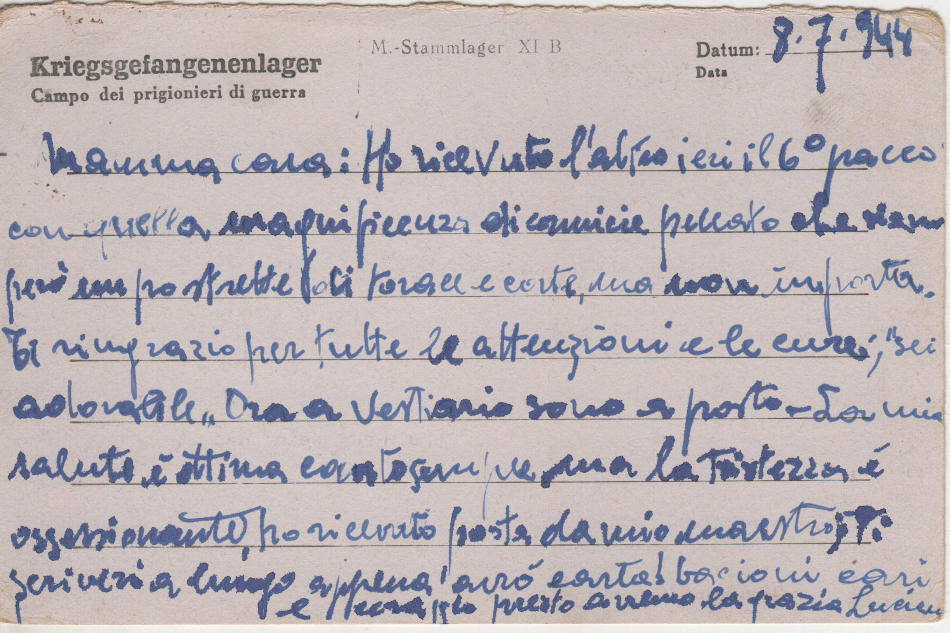 M.-Stammlager XI B
Kriegsgefangenenlager
Campo dei prigionieri di guerra
Datum: 8.7.944
Data
Mamma cara: Ho ricevuto l'altro ieri il 6° pacco
con quella magnificenza di camicie peccato che siano
però un po strette di torace e corte, ma non importa.
Ti ringrazio per tutte le attenzioni e le cure; "sei
adorabile„ Ora a vestiario sono a posto - La mia
salute é ottima canto sempre ma la tristezza é
ossessionante, ho ricevuto posta da mio maestro, Ti
scriverò a lungo appena avrò carta! bacioni cari
e coraggio presto avremo la grazia Luciano